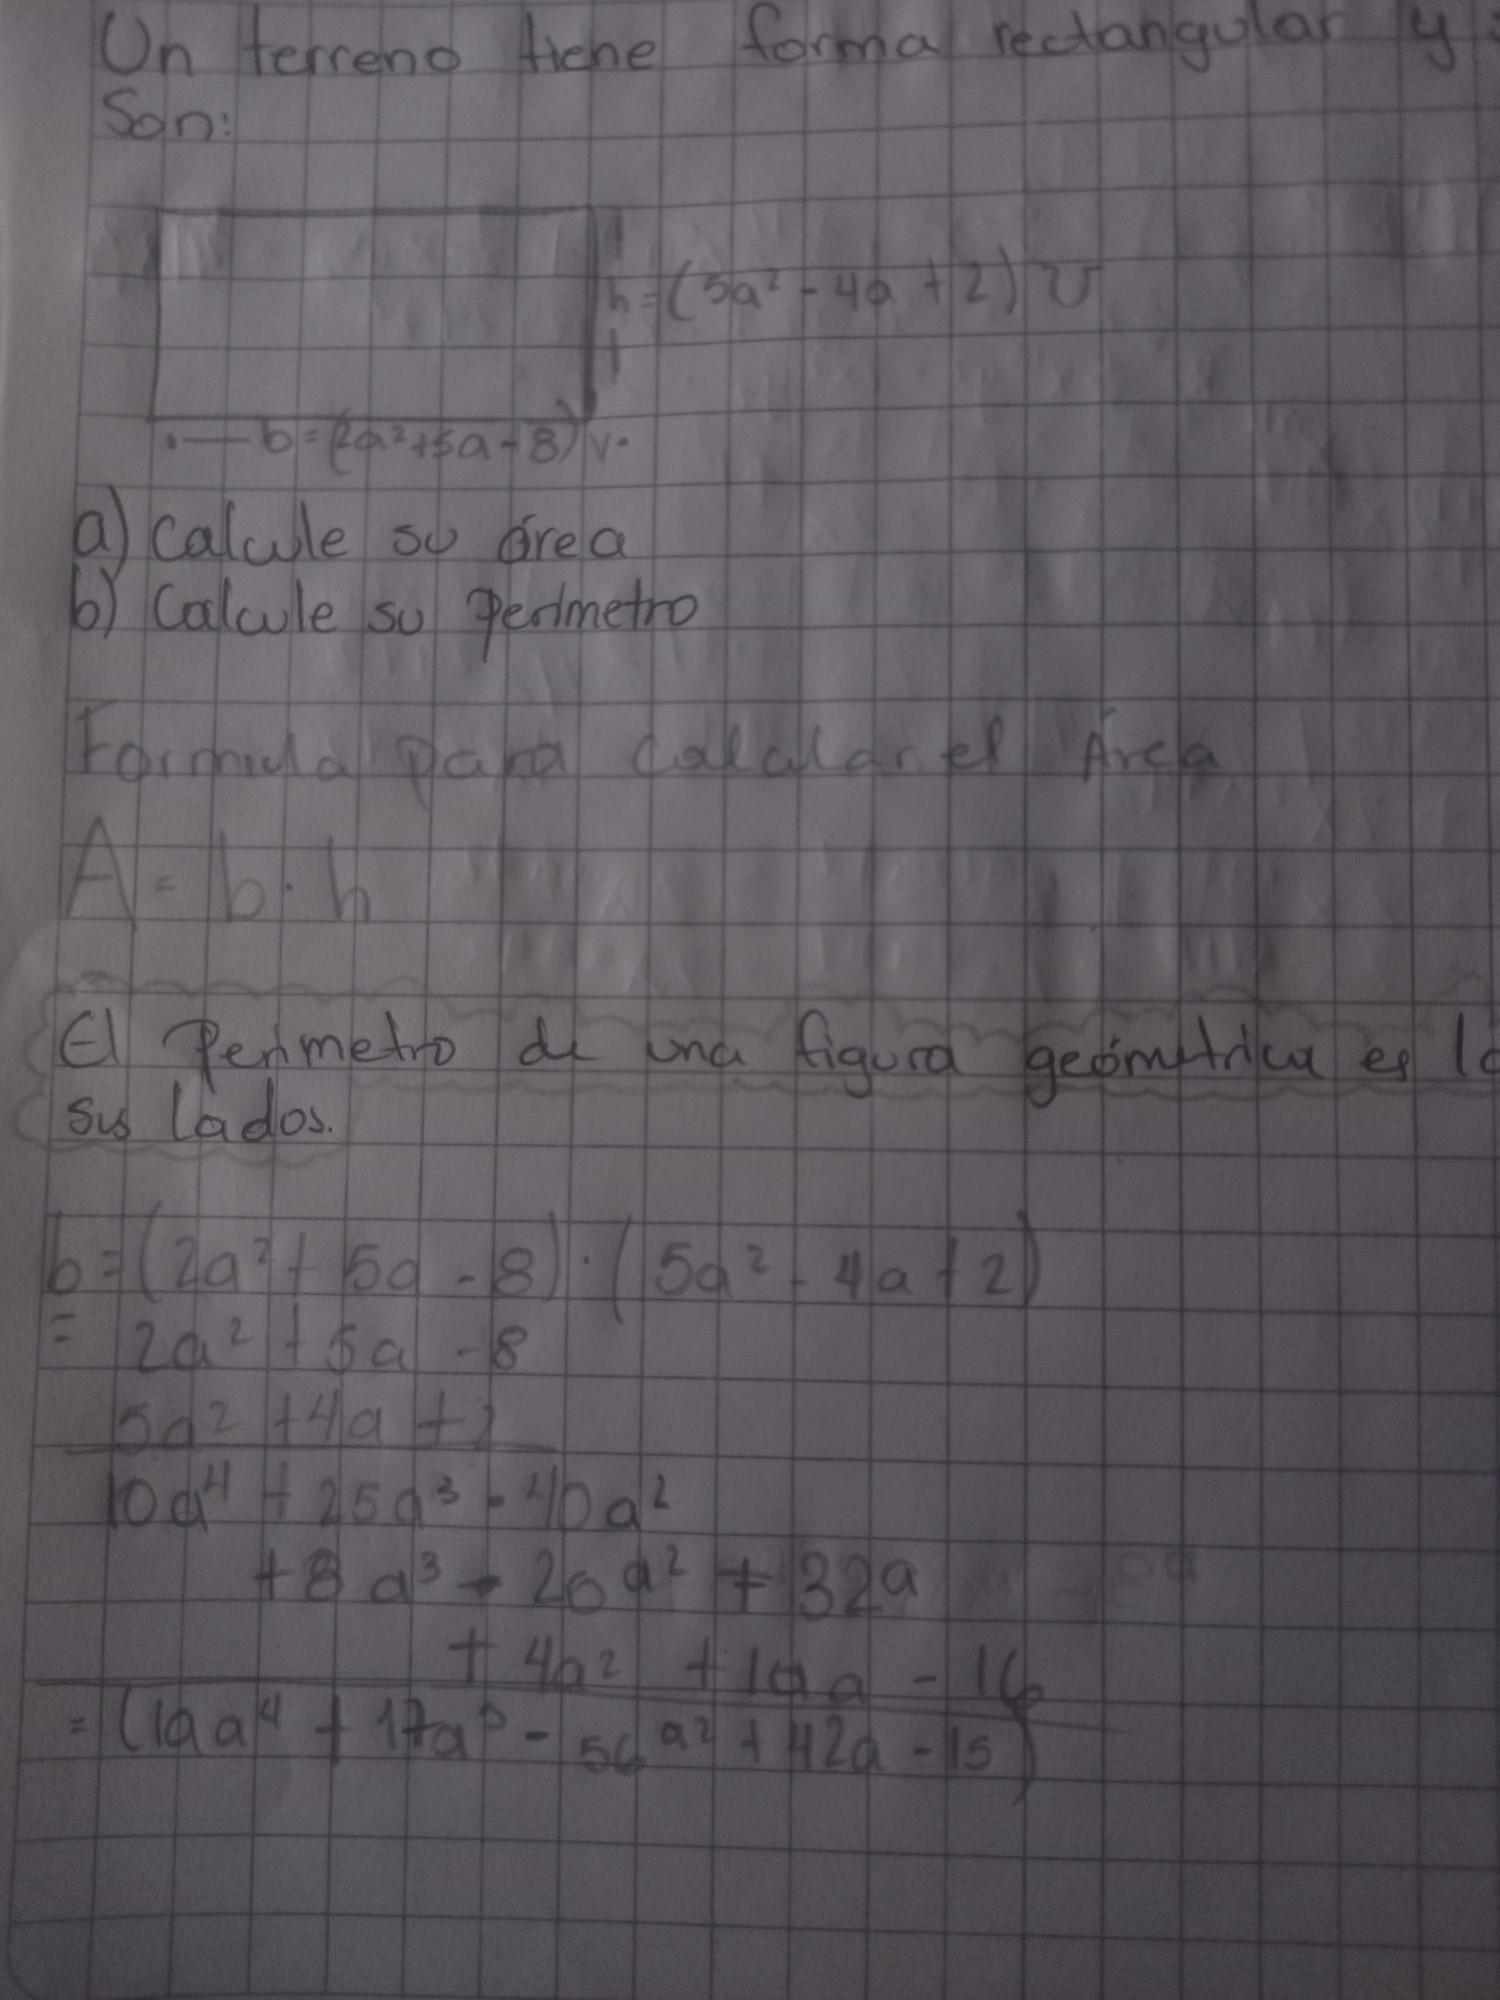 Un terreno tiene forma rectangular y
Son:
h=(5a² - 4a + 2) U
b=(2a²+5a-8) v.
a) Calcule su área
b) Calcule su perímetro
Formula para calcular el Área
A = b · h
El Perimetro de una figura geométrica es
sus lados.
b=(2a² + 5a - 8) · (5a² - 4a + 2)
= 2a² + 5a - 8
5a² + 4a + 2
10a⁴ + 25a³ - 40a²
+ 8a³ - 20a² + 32a
+ 4a² + 10a - 16
= (10a⁴ + 17a³ - 56a² + 42a - 15)